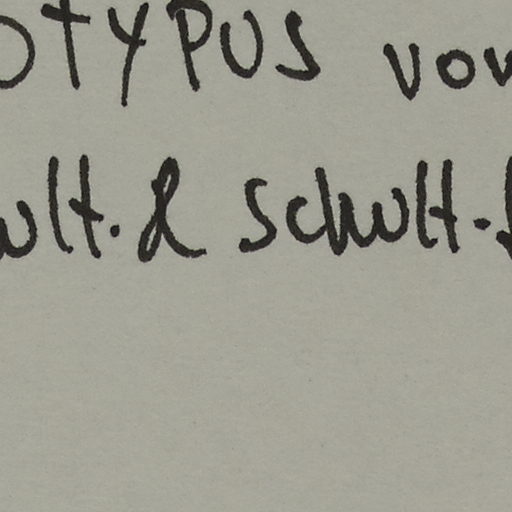 OTYPUS von
ult. & Schult. f